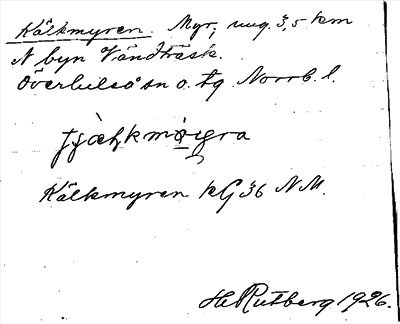 Kälkmyren. Myr, ung. 3,5 km
N byn Vändträsk.
Överluleå sn o. tg Norrb. l.
Kälkmyren kG 36 N.M.
H. Rutberg 1926.